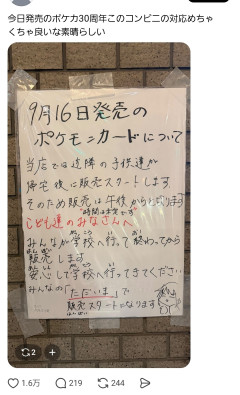 今日発売のポケカ30周年このコンビニの対応めちゃ
くちゃ良いな素晴らしい
9月16日発売の
ポケモンカードについて
当店では近隣の子供達が
帰宅後に販売スタートします
そのため販売は午後からとなります
時間は未定です
こども達のみなさんへ
みんなが学校へ行って終わってから
販売します
安心して学校へ行ってきてください
みんなの「ただいま」で
販売スタートになります
2
1.6万
219
244